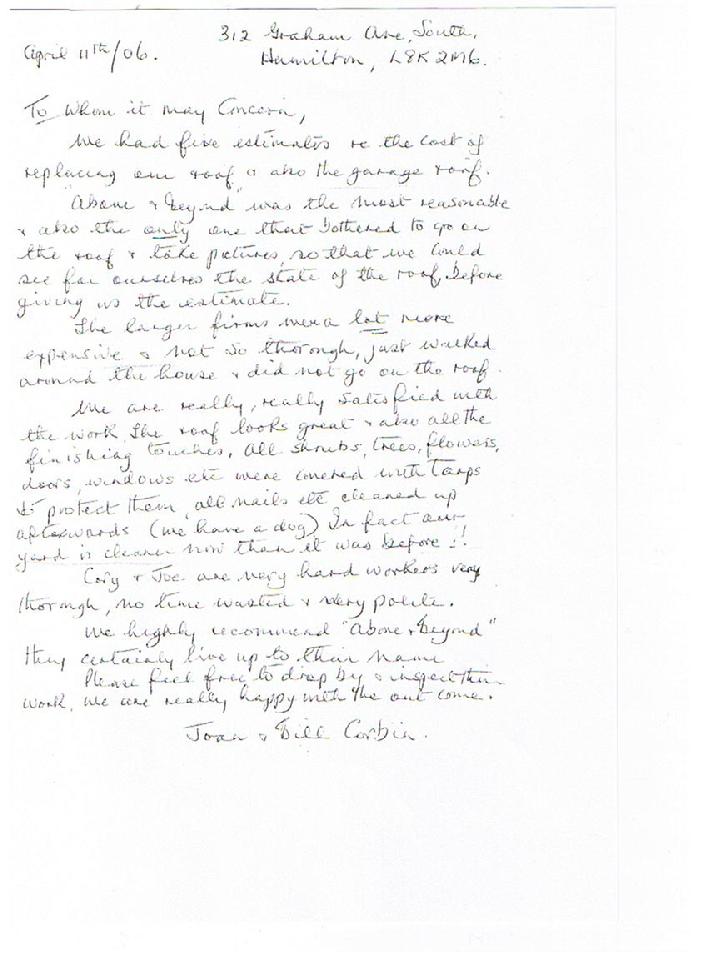 312 Graham Ave South,
April 11th/06.
Hamilton, L8K 2M6.
To Whom it may Concern,
We had five estimates re the cost of
replacing our roof & also the garage roof.
"Above & Beyond" was the most reasonable
& also the only one that bothered to go on
the roof & take pictures, so that we could
see for ourselves the state of the roof, before
giving us the estimate.
The larger firms were a lot more
expensive & not so thorough, just walked
around the house & did not go on the roof.
We are really, really satisfied with
the work, the roof looks great & also all the
finishing touches, all shrubs, trees, flowers,
doors, windows etc were covered with Tarps
to protect them, all nails etc cleaned up
afterwards (we have a dog) In fact our
yard is cleaner now than it was before!!
Cory & Joe are very hard workers very
thorough, no time wasted & very polite.
We highly recommend "Above & Beyond"
they certainly live up to their name
Please feel free to drop by & inspect their
work, we are really happy with the out come.
Joan & Bill Corbin.